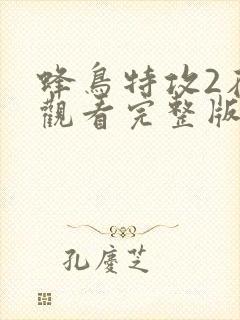 蜂鳥特攻2
觀看完整版
孔慶芝